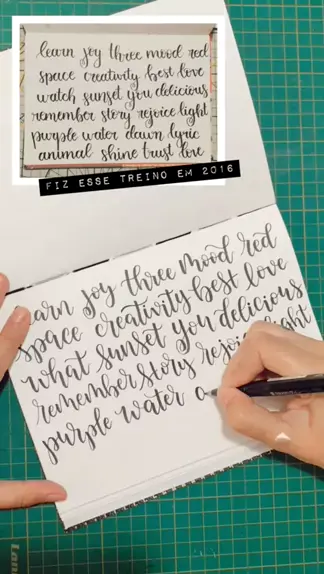 learn joy three mood red
space creativity best love
watch sunset you delicious
remember story rejoice light
purple water dawn lyric
animal shine trust love
FIZ ESSE TREINO EM 2016
earn joy three mood red
space creativity best love
what sunset you delicious
remember story rejoice light
purple water